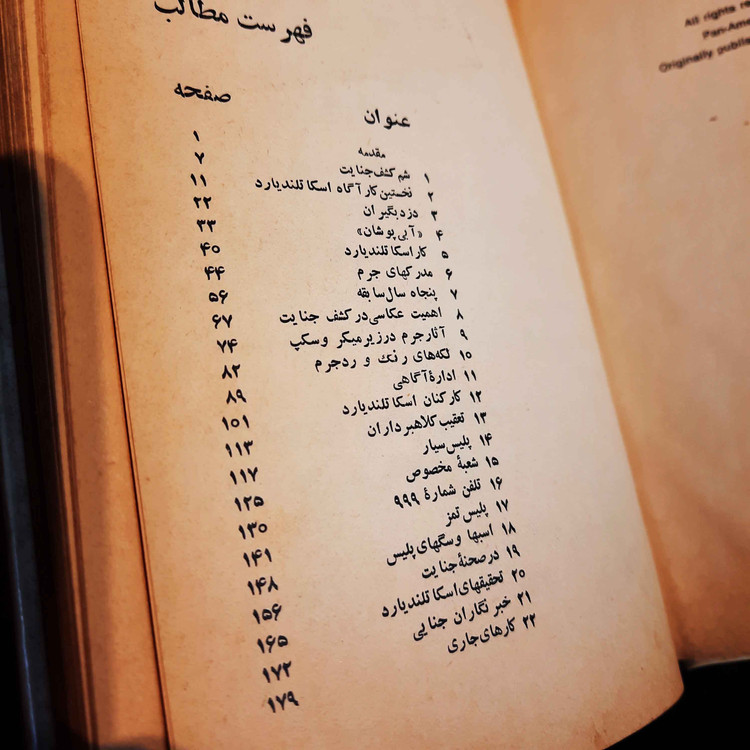 فهرست مطالب
عنوان صفحه
مقدمه ۱
۱ شم کشف جنایت ۷
۲ نخستین کارآگاه اسکاتلندیارد ۱۱
۳ دزدبگیران ۲۲
۴ «آبی‌پوشان» ۳۳
۵ کار اسکاتلندیارد ۴۰
۶ مدرکهای جرم ۴۴
۷ پنجاه سال سابقه ۵۶
۸ اهمیت عکاسی در کشف جنایت ۶۷
۹ آثار جرم در زیر میکروسکپ ۷۴
۱۰ لکه‌های رنگ و رد جرم ۸۲
۱۱ ادارهٔ آگاهی ۸۹
۱۲ کارکنان اسکاتلندیارد ۱۰۱
۱۳ تعقیب کلاهبرداران ۱۱۳
۱۴ پلیس سیار ۱۱۷
۱۵ شعبهٔ مخصوص ۱۲۵
۱۶ تلفن شمارهٔ ۹۹۹ ۱۳۰
۱۷ پلیس تمز ۱۴۱
۱۸ اسبها و سگهای پلیس ۱۴۸
۱۹ در صحنهٔ جنایت ۱۵۶
۲۰ تحقیقهای اسکاتلندیارد ۱۶۵
۲۱ خبرنگاران جنایی ۱۷۲
۲۲ کارهای جاری ۱۷۹
All rights re
Pan-Ame
Originally publis